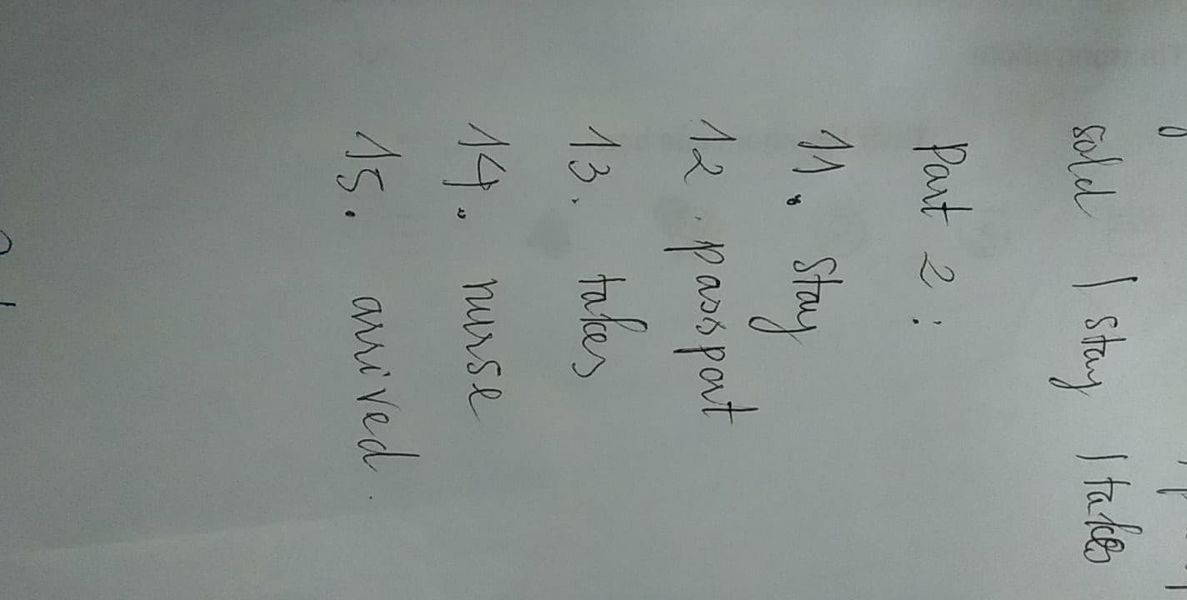 sold / stay / takes
Part 2 :
11. stay
12. passport
13. takes
14. nurse
15. arrived.